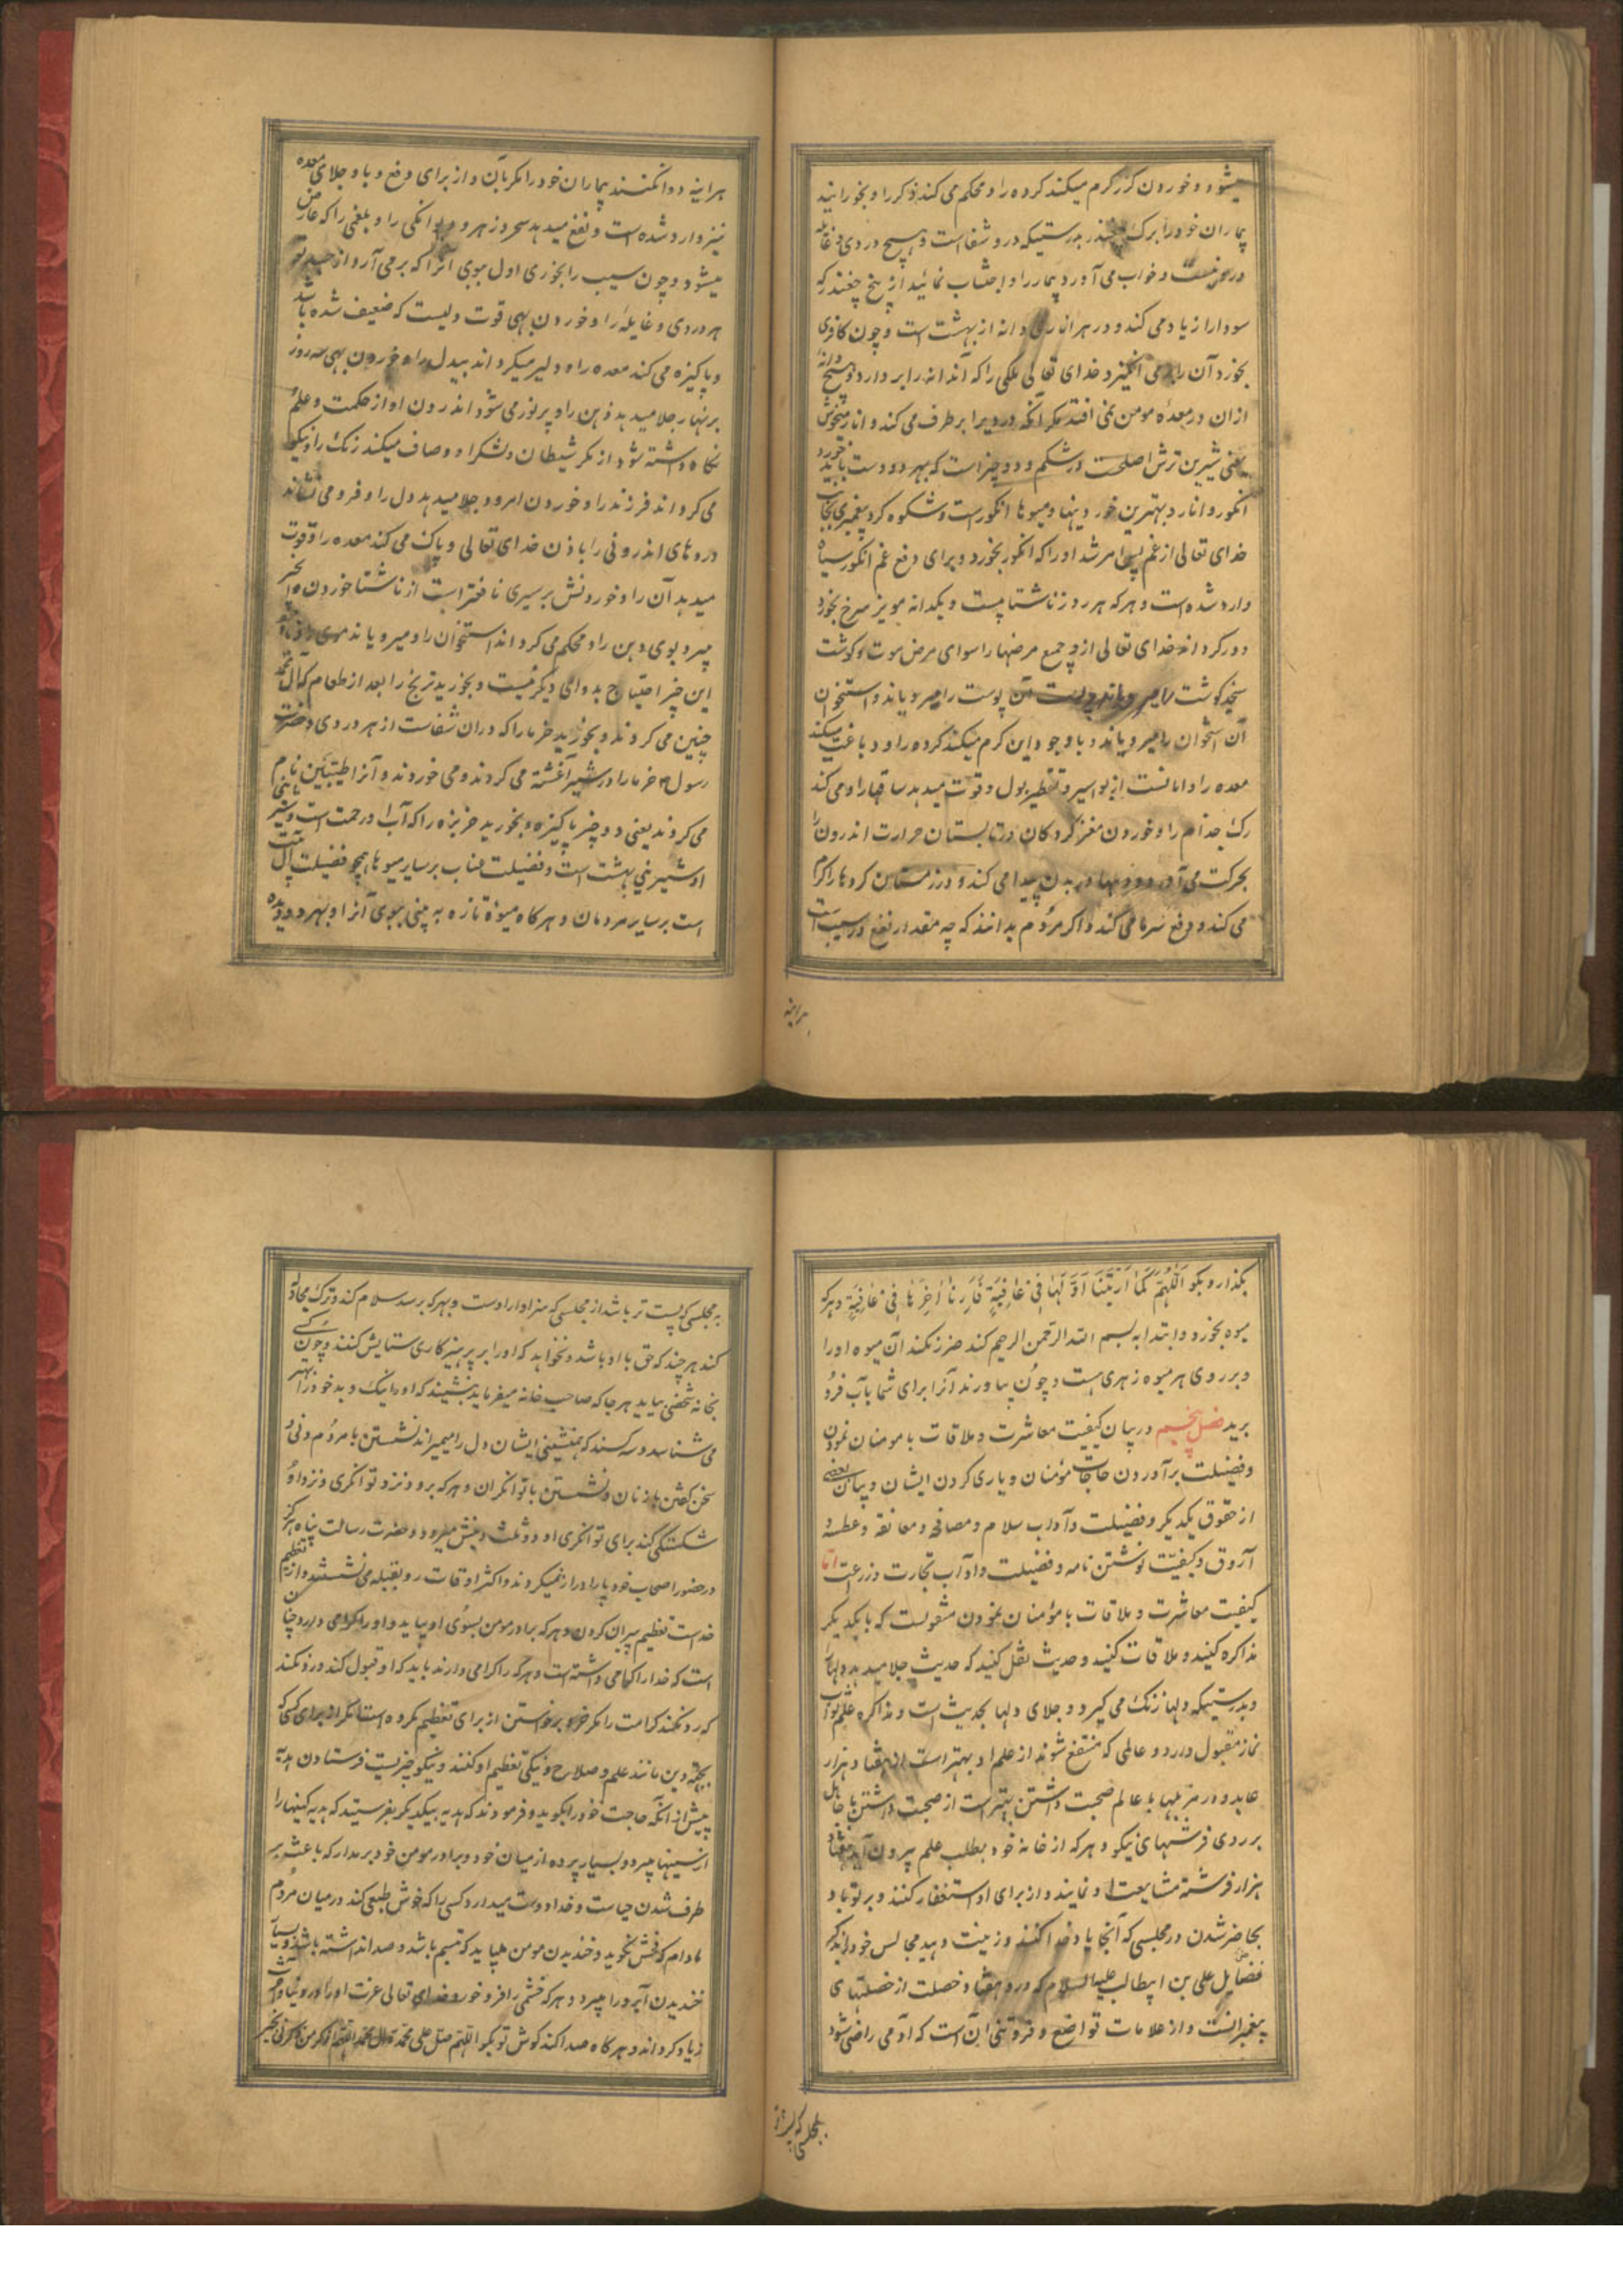 میشود و خوردن گزر گرم میکند گرده را و محکم می کند ذکر را و بخورانید
بیماران خود را برک چغندر بدرستیکه درو شفاست و هیچ دردی و غایله
درو نیست و خواب می آورد بیمار را و اجتناب نمائید از بیخ چغندر که
سودا را زیاد می کند و در هر اناری دانه از بهشت است و چون کافری
بخورد آن را می انگیزد خدای تعالی ملکی را که آندانه را بردارد و هیچ دانهٔ
ازان در معدهٔ مومن نمی افتد مگر آنکه دردیرا برطرف می کند و انار میخوش
یعنی شیرین ترش اصلحست در شکم و دو چیز است که بهر دو دست باید خورد
انگور و انار و بهترین خوردنیها و میوها انگورست و شکوه کرد پیغمبری بجناب
خدای تعالی از غم پس امر شد او را که انگور بخورد و برای دفع غم انگور سیاه
وارد شده است و هر که هر روز ناشتا بیست و یکدانه مویز سرخ بخورد
دور گرداند خدای تعالی ازو جمع مرضها را سوای مرض موت و گوشت
سنجد گوشت را میرویاند و پوست آن پوست را میرویاند و استخوان
آن استخوان را میرویاند و با وجود این گرم میکند گرده را و دباغت میکند
معده را و امانست از بواسیر و تقطیر بول و قوت میدهد ساقها را و می کند
رک جذام را و خوردن مغز گردکان در تابستان حرارت اندرون را
بحرکت می آورد و دملها در بدن پیدا می کند و در زمستان گردها را گرم
می کند و دفع سرما می کند و اگر مردم بدانند که چه مقدار نفع در سیب است
هراینه
هراینه دوا نکنند بیماران خود را مگر بآن و از برای دفع وبا و جلای معده
نیز وارد شده است و نفع میدهد سحر و زهر و دیوانگی را و بلغمی را که عارض
میشود و چون سیب را بخوری اول ببوی آنرا که بر می آرد از جسد تو
هر دردی و غایله را و خوردن بهی قوت دلیست که ضعیف شده باشد
و پاکیزه می کند معده را و دلیر میگرداند بیدل را و خوردن بهی سه روز
بر نهار جلا میدهد ذهن را و پر نور می شود اندرون او از حکمت و علم و
نگاه داشته شود از مکر شیطان و لشکر او و صاف میکند رنک را و نیکو
می گرداند فرزند را و خوردن امرود جلا میدهد دل را و فرو می نشاند
دردهای اندرونی را باذن خدای تعالی و پاک می کند معده را و قوت
میدهد آن را و خوردنش بر سیری نافعتر است از ناشتا خوردن و انجیر
میبرد بوی دهن را و محکم می گرداند استخوان را و میرویاند موی را و با وجود
این چیز احتیاج بدوای دیگر نیست و بخورید ترنج را بعد از طعام که آل محمد
چنین می کردند و بخورید خرما را که دران شفاست از هر دردی و حضرت
رسول ص خرما را در شیر آغشته می کردند و می خوردند و آنرا طیبتین نام
می کردند یعنی دو چیز پاکیزه و بخورید خربزه را که آب او رحمت است و شیرینی
او شیرینی بهشت است و فضیلت عناب بر سایر میوها همچو فضیلت اهل بیت
است بر سایر مردمان و هر کاه میوهٔ تازه به بینی ببوی آنرا و بهر دو دیده
بگذار و بگو اَللّٰهُمَّ كَمٰا اَرَيْتَنَا اَوَّلَهٰا فِي عٰافِيَةٍ فَاَرِنٰا اٰخِرَهٰا فِي عٰافِيَةٍ و هر که
میوه بخورد و ابتدا به بسم الله الرحمن الرحیم کند ضرر نکند آن میوه او را
و بر روی هر میوه زهری هست و چون بیاورند آنرا برای شما بآب فرو
برید فصل پنجم در بیان کیفیت معاشرت و ملاقات با مومنان نمودن
و فضیلت برآوردن حاجات مؤمنان و یاری کردن ایشان و بیان بعضی
از حقوق یکدیگر و فضیلت و آداب سلام و مصافحه و معانقه و عطسه و
آروق و کیفیت نوشتن نامه و فضیلت و اداب تجارت و زرعت اما
کیفیت معاشرت و ملاقات با مؤمنان نمودن منقولست که با یکدیگر
مذاکره کنید و ملاقات کنید و حدیث نقل کنید که حدیث جلا میدهد دلها را
و بدرستیکه دلها زنک می گیرد و جلای دلها بحدیث است و مذاکره علم ثواب
نماز مقبول دارد و عالمی که منتفع شوند از علم او بهتر است از هفتاد هزار
عابد و در مزبلها با عالم صحبت داشتن بهتر است از صحبت داشتن با جاهل
بر روی فرشهای نیکو و هر که از خانه خود بطلب علم بیرون آید هفتاد
هزار فرشته مشایعت او نمایند و از برای او استغفار کنند و بر تو باد
بحاضر شدن در مجلسی که آنجا یاد خدا کنند و زینت دهید مجالس خود را بذکر
فضایل علی بن ابیطالب علیه السلام که درو هفتاد خصلت از خصلتهای
پیغمبرانست و از علامات تواضع و فروتنی آن است که آدمی راضی شود
بمجلسی که پست تر
به مجلسی که پست تر باشد از مجلسی که سزاوار اوست و بهر که برسد سلام کند و ترک مجادله
کند هر چند که حق با او باشد و نخواهد که او را بر پرهیزکاری ستایش کنند و چون کسی
بخانه شخصی بیاید هر جا که صاحب خانه میفرماید بنشیند که او نیک و بد خود را بهتر
می شناسد و سه کسند که همنشینی ایشان دل را میمیراند نشستن با مردم دنی و
سخن گفتن با زنان و نشستن با توانگران و هر که برود نزد توانگری و نزد او
شکستگی کند برای توانگری او دو ثلث دینش میرود و حضرت رسالت پناه هرگز
در حضور اصحاب خود پا را دراز نمیکردند و اکثر اوقات رو بقبله می نشستند و از تعظیم
خداست تعظیم پیران کردن و هر که برادر مومن بسوی او بیاید و او را گرامی دارد چنان
است که خدا را گرامی داشته است و هر که را گرامی دارند باید که او قبول کند و رد نکند
که رد نکند کرامت را مگر خر و برخواستن از برای تعظیم مکروه است مگر از برای کسی که
بجهة دین مانند علم و صلاح و نیکی تعظیم او کنند و نیکو چیزیست فرستادن هدیه
پیش از آنکه حاجت خود را بگوید و فرمودند که هدیه بیکدیگر بفرستید که هدیه کینها را
از سینها میبرد و بسیار پرده از میان خود و برادر مومن خود برمدار که باعث بر
طرف شدن حیاست و خدا دوست میدارد کسی را که خوش طبعی کند در میان مردم
مادام که فحش نگوید و خندیدن مومن میباید که تبسم باشد و صدا نداشته باشد و بسیار
خندیدن آبرو را میبرد و هر که خشمی را فرو خورد خدای تعالی عزت او را در دنیا و آخرت
زیاد گرداند و هر کاه صدا کند گوش تو بگو اللهم صل علی محمد و آل محمد اللهم اذکر من ذکرنی بخیر